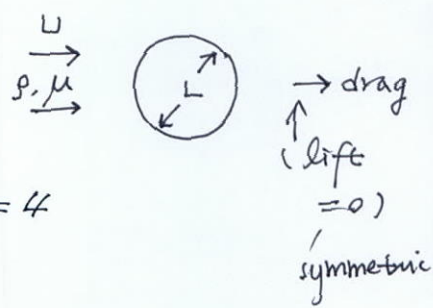 U
ρ, μ
L
drag
(lift
= 4
=0)
symmetric